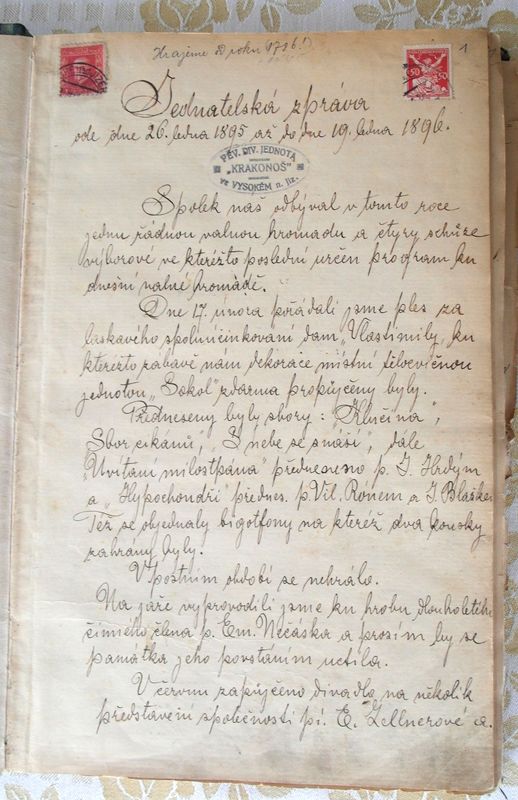 Hrajeme od roku 1786!
1
Jednatelská zpráva
ode dne 26. ledna 1895 až do dne 19. ledna 1896.
PĚV. DIV. JEDNOTA
„KRAKONOŠ"
ve VYSOKÉM n. Jiz.
Spolek náš odbýval v tomto roce
jednu řádnou valnou hromadu a čtyry schůze
výborové ve kteréžto poslední určen program ku
dnešní valné hromadě.
Dne 17. února pořádali jsme ples za
laskavého spoluúčinkování dam „Vlastimily, ku
kteréžto zábavě nám dekorace místní tělocvičnou
jednotou „Sokol" zdarma propůjčeny byly.
Předneseny byly sbory:
Sbor cikánů", „S nebe se snáší", dále
Uvítání milostpána" přednešeno p. J. Hrdým
a „Hypochondři" přednes. p. Vil. Ronem a J. Blaškem
Též se objednaly bigotfony na kteréž dva kousky
zahrány byly.
V postním období se nehrálo.
Na jaře vyprovodili jsme ku hrobu dlouholetého
činného člena p. Em. Nečáska a prosím by se
památka jeho povstáním uctila.
V červnu zapůjčeno divadlo na několik
představení společnosti pí. E. Zellnerové a.